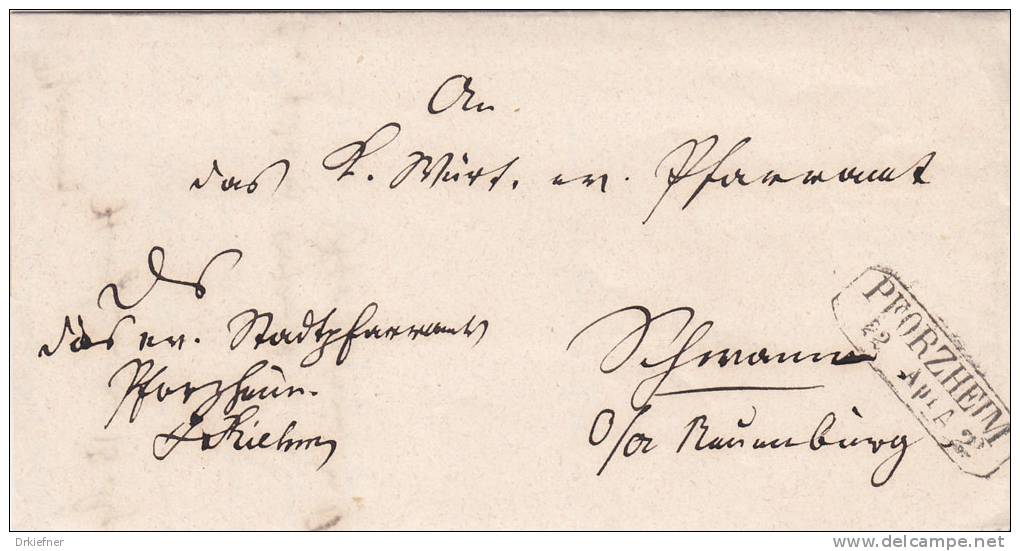 An
das K. Würt. ev. Pfarramt
Ds
das ev. Stadtpfarramt
Pforzheim.
Riehm
Schwann
O/A Neuenbürg
PFORZHEIM
22 Apr A 2
Drkiefner
www.delcampe.net